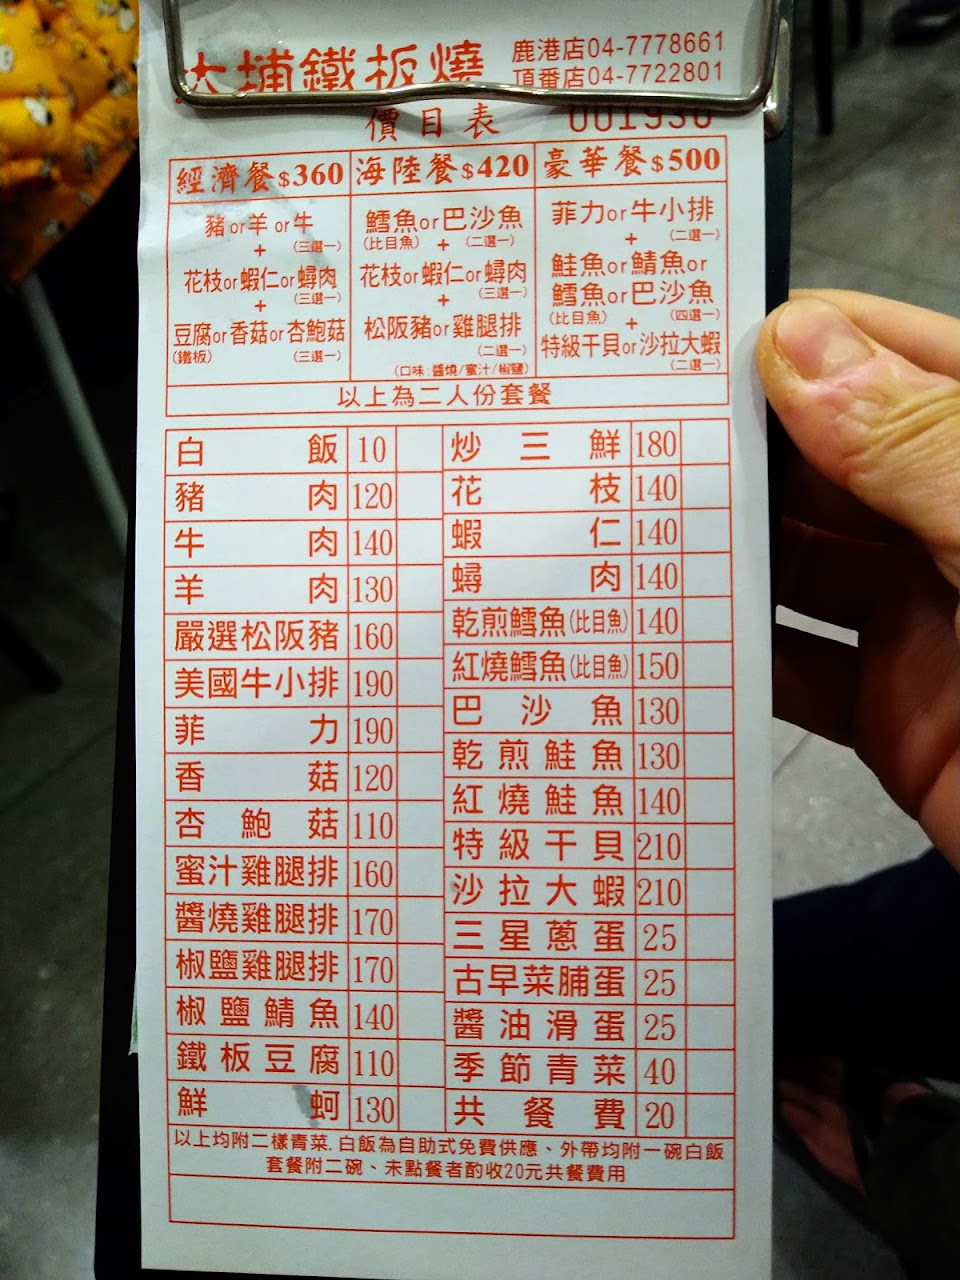 大埔鐵板燒
鹿港店04-7778661
頂番店04-7722801
價目表 001930
經濟餐$360
豬or羊or牛
+ (三選一)
花枝or蝦仁or蟳肉
+ (三選一)
豆腐or香菇or杏鮑菇
(鐵板) (三選一)
海陸餐$420
鱈魚or巴沙魚
(比目魚) + (二選一)
花枝or蝦仁or蟳肉
+ (三選一)
松阪豬or雞腿排
(二選一)
(口味:醬燒/蜜汁/椒鹽)
豪華餐$500
菲力or牛小排
+ (二選一)
鮭魚or鯖魚or
鱈魚or巴沙魚
(比目魚) + (四選一)
特級干貝or沙拉大蝦
(二選一)
以上為二人份套餐
白飯 10
豬肉 120
牛肉 140
羊肉 130
嚴選松阪豬 160
美國牛小排 190
菲力 190
香菇 120
杏鮑菇 110
蜜汁雞腿排 160
醬燒雞腿排 170
椒鹽雞腿排 170
椒鹽鯖魚 140
鐵板豆腐 110
鮮蚵 130
炒三鮮 180
花枝 140
蝦仁 140
蟳肉 140
乾煎鱈魚(比目魚) 140
紅燒鱈魚(比目魚) 150
巴沙魚 130
乾煎鮭魚 130
紅燒鮭魚 140
特級干貝 210
沙拉大蝦 210
三星蔥蛋 25
古早菜脯蛋 25
醬油滑蛋 25
季節青菜 40
共餐費 20
以上均附二樣青菜.白飯為自助式免費供應、外帶均附一碗白飯
套餐附二碗、未點餐者酌收20元共餐費用